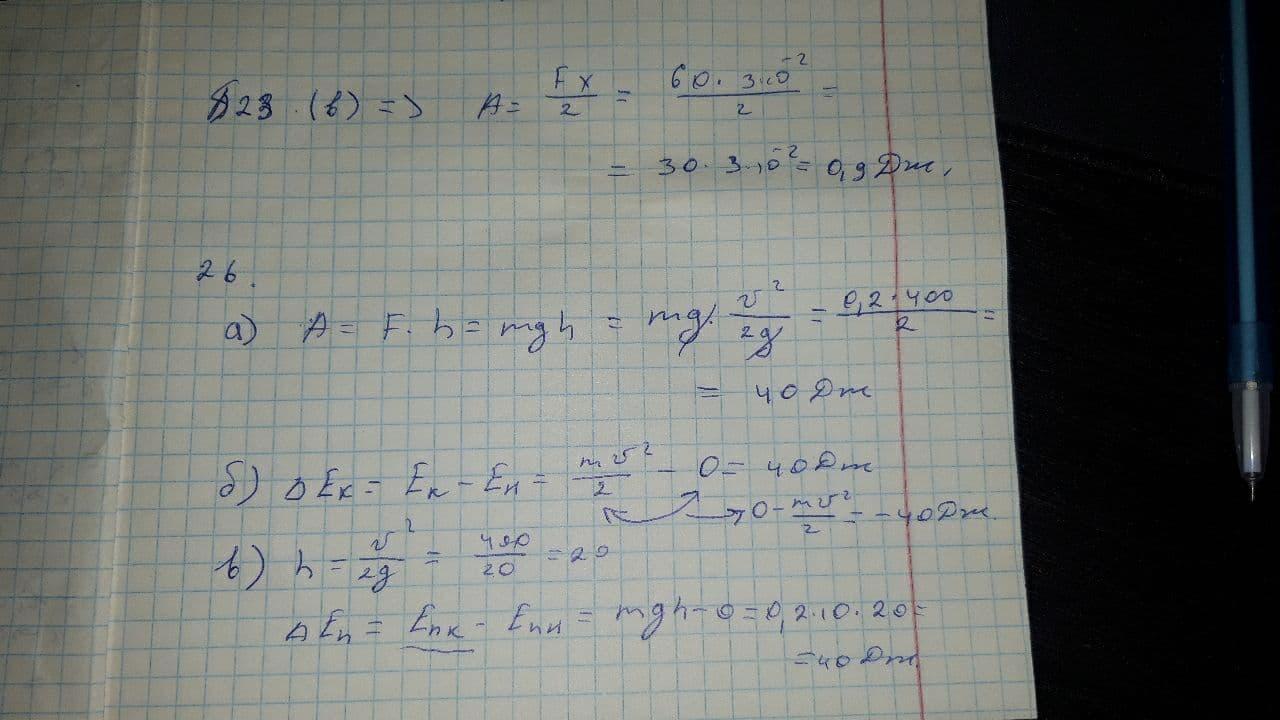 §23. (в) => A = Fx/2 = 60·3·10⁻²/2 =
= 30·3·10⁻² = 0,9 Дж.
26.
а) A = F·h = mgh = mg·v²/2g = 0,2·400/2 =
= 40 Дж
б) ΔEк = Eк - Eн = mv²/2 - 0 = 40 Дж
0 - mv²/2 = -40 Дж.
в) h = v²/2g = 400/20 = 20
ΔEп = Eпк - Eпн = mgh - 0 = 0,2·10·20 =
= 40 Дж